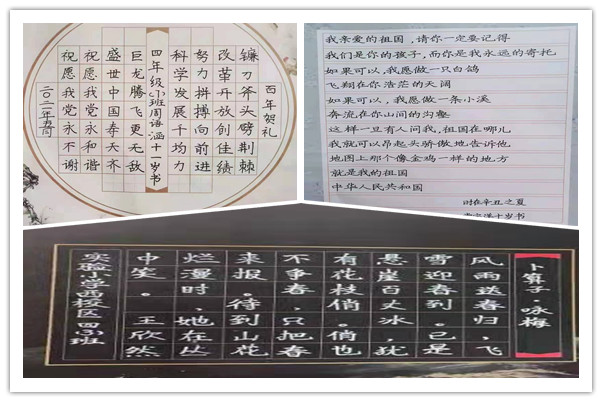 百年贺礼
镰刀斧头劈荆棘
改革开放创佳绩
努力拼搏向前进
科学发展千均力
四年级(3)班周语涵十一岁书
巨龙腾飞更无敌
盛世中国寿天齐
祝愿我党永和谐
祝愿我党永不谢
二〇二一年五月
我亲爱的祖国,请你一定要记得
我们是你的孩子,而你是我永远的寄托
如果可以,我愿做一只白鸽
飞翔在你浩茫的天阔
如果可以,我愿做一条小溪
奔流在你山间的沟壑
这样一旦有人问我,祖国在哪儿
我就可以昂起头骄傲地告诉他
地图上那个像金鸡一样的地方
就是我的祖国
中华人民共和国
时在辛丑之夏
十岁书
卜算子·咏梅
风雨送春归,飞
雪迎春到。已是
悬崖百丈冰,犹
有花枝俏。俏也
不争春,只把春
来报。待到山花
烂漫时,她在丛
中笑。 王欣然
实验小学西校区四(3)班